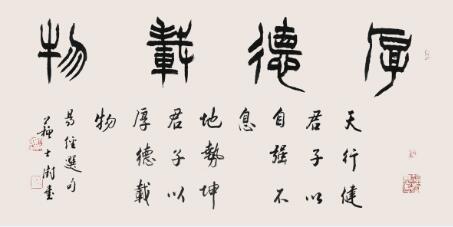 厚德載物
天行健
君子以
自强不
息
地勢坤
君子以
厚德載
物
易经選句
蘇士澍書